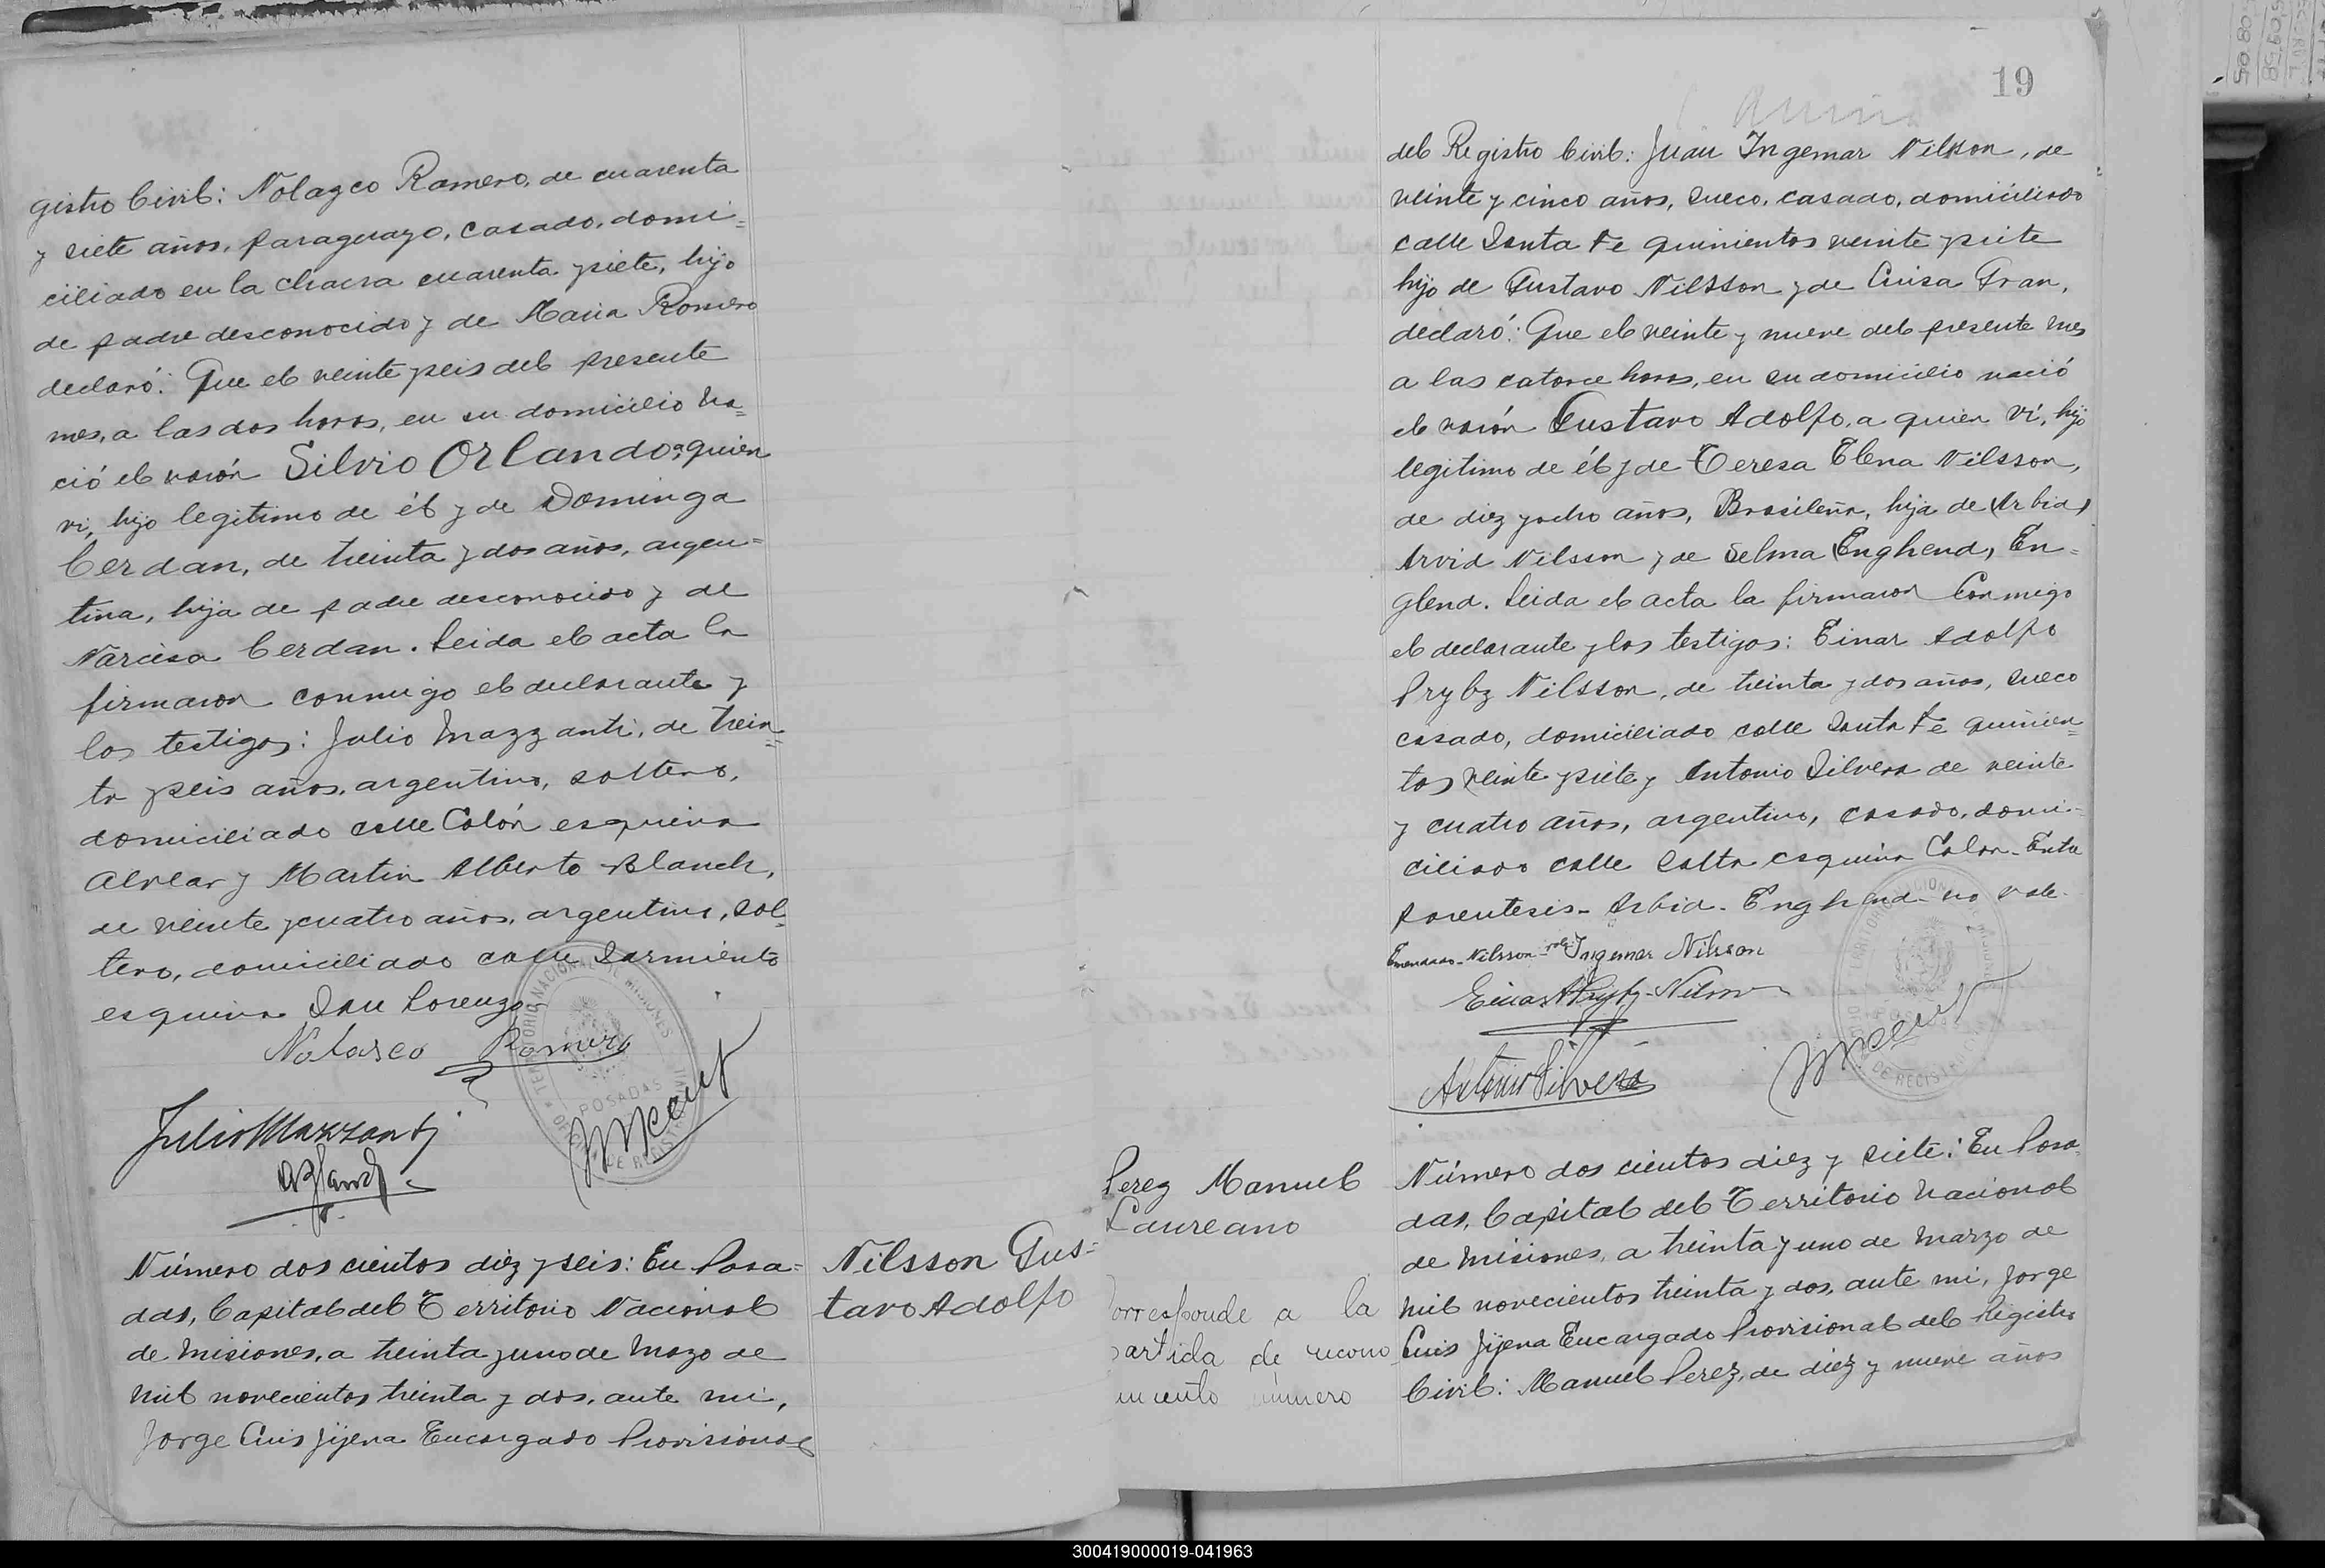 gistro Civil: Nolazco Romero, de cuarenta
y siete años, paraguayo, casado, domi=
ciliado en la chacra cuarenta y siete, hijo
de padre desconocido y de Maria Romero
declaró: Que el veinte y seis del presente
mes, a las dos horas, en su domicilio na=
ció el varón Silvio Orlando, a quien
vi, hijo legitimo de él y de Dominga
Cerdan, de treinta y dos años, argen=
tina, hija de padre desconocido y de
Narcisa Cerdan. Leida el acta la
firmaron conmigo el declarante y
los testigos: Julio Mazzanti, de trein=
ta y seis años, argentino, soltero,
domiciliado calle Colón esquina
Alvear y Martin Alberto Blanch,
de veinte y cuatro años, argentino, sol=
tero, domiciliado calle Sarmiento
esquina San Lorenzo
Nolasco Romero
Julio Mazzanti
TERRITORIO NACIONAL DE MISIONES
POSADAS
Número dos cientos diez y seis: En Posa=
das, Capital del Territorio Nacional
de Misiones, a treinta y uno de Mazo de
mil novecientos treinta y dos, ante mi,
Jorge Luis Jijena Encargado Provisional
Nilsson Gus=
tavo Adolfo
19
del Registro Civil: Juan Ingemar Nilsson, de
veinte y cinco años, sueco, casado, domiciliado
calle Santa Fe quinientos veinte y siete
hijo de Gustavo Nilsson y de Luisa Gran,
declaró: Que el veinte y nueve del presente mes
a las catorce horas, en su domicilio nació
el varón Gustavo Adolfo, a quien vi, hijo
legitimo de él y de Teresa Elena Nilsson,
de diez y ocho años, Brasileña, hija de (Arbid)
Arvid Nilsson y de Selma (Enghend) En=
glend. Leida el acta la firmaron conmigo
el declarante y los testigos: Einar Adolfo
Prybz Nilsson, de treinta y dos años, sueco
casado, domiciliado calle Santa Fe quinien=
tos veinte y siete y Antonio Silvera de veinte
y cuatro años, argentino, casado, domi=
ciliado calle Salta esquina Colon. Entre
parentesis - Arbid - Enghend - no vale.
Enmendado - Nilsson - vale Ingemar Nilsson
Antonio Silvera
Perez Manuel
Laureano
orresponde a la
artida de recono
miento número
Número dos cientos diez y siete: En Posa=
das, Capital del Territorio Nacional
de Misiones, a treinta y uno de Marzo de
mil novecientos treinta y dos, ante mi, Jorge
Luis Jijena Encargado Provisional del Registro
Civil: Manuel Perez, de diez y nueve años
300419000019-041963